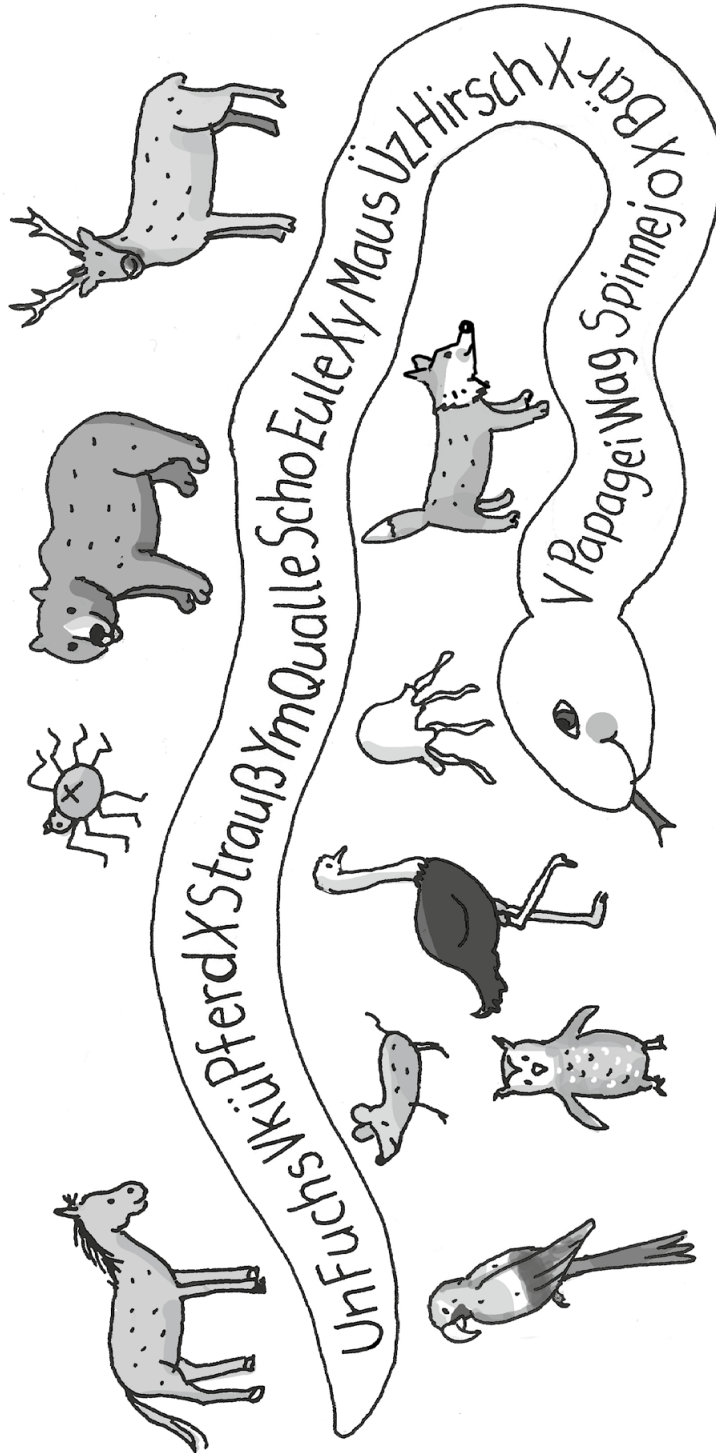 UnFuchsVküPferdXStraußYmQualleSchoEuleXyMausÜzHirschXBärXoSpinnejoXVPapageiWag